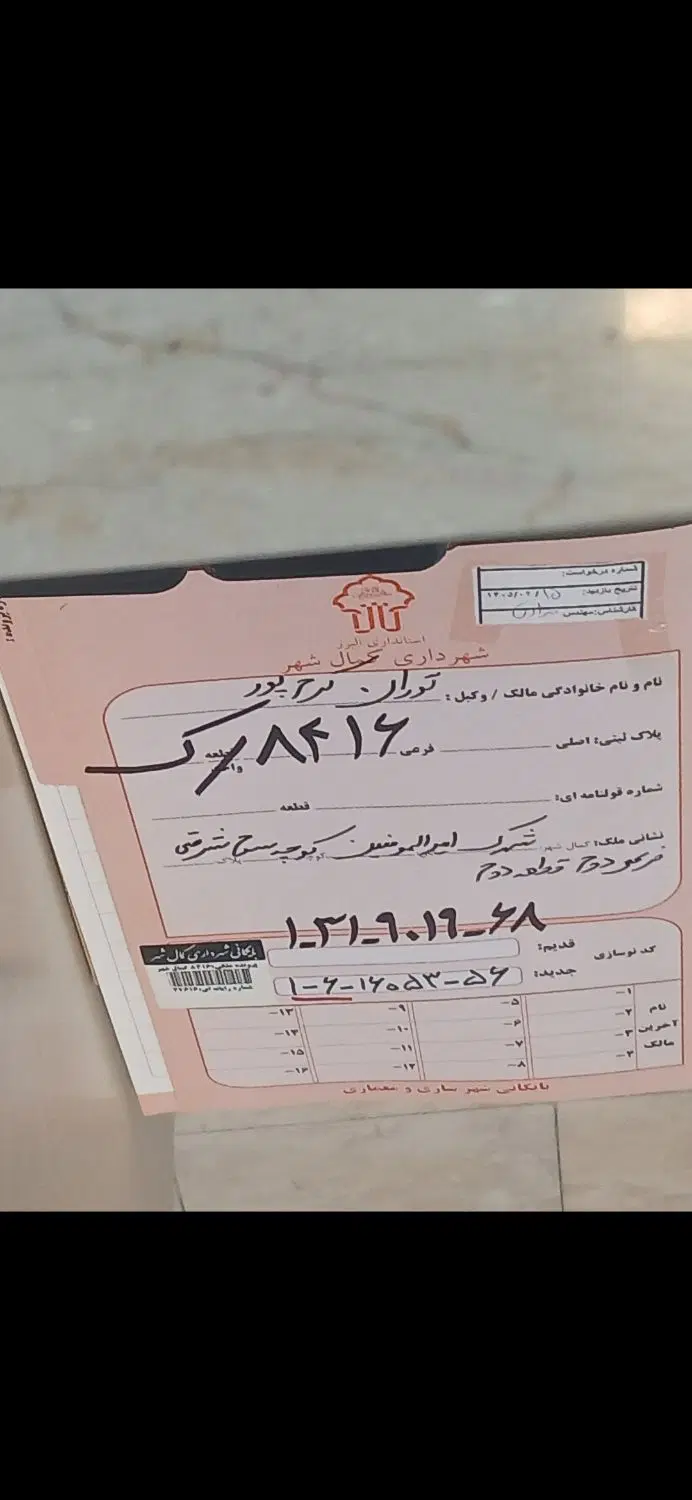 شماره درخواست:
تاریخ بازدید: ۱۴۰۵/۰۲/۱۵
کارشناس: مهندس
استانداری البرز
شهرداری کمال شهر
نام و نام خانوادگی مالک / وکیل: توران
پلاک ثبتی: اصلی فرعی قطعه واحد
۸۴۱۶/ک
شماره قولنامه ای: قطعه
نشانی ملک: کمال شهر شهرک امیرالمومنین کوچه سرخ شرقی
فرعی دوم قطعه دوم
۱-۳۱-۹۰۱۹-۶۸
کد نوسازی قدیم:
جدید: ۱-۶-۱۶۰۵۳-۵۶
بایگانی شهرداری کمال شهر
نام آخرین مالک
۱- ۵- ۹- ۱۳-
۲- ۶- ۱۰- ۱۴-
۳- ۷- ۱۱- ۱۵-
۴- ۸- ۱۲- ۱۶-
بایگانی شهر سازی و معماری